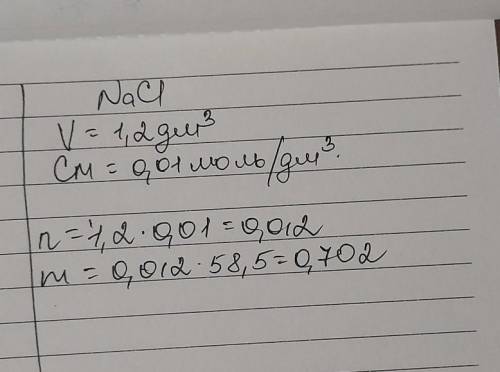 NaCl
V = 1,2 дм³
См = 0,01 моль/дм³.
n = 1,2 · 0,01 = 0,012
m = 0,012 · 58,5 = 0,702